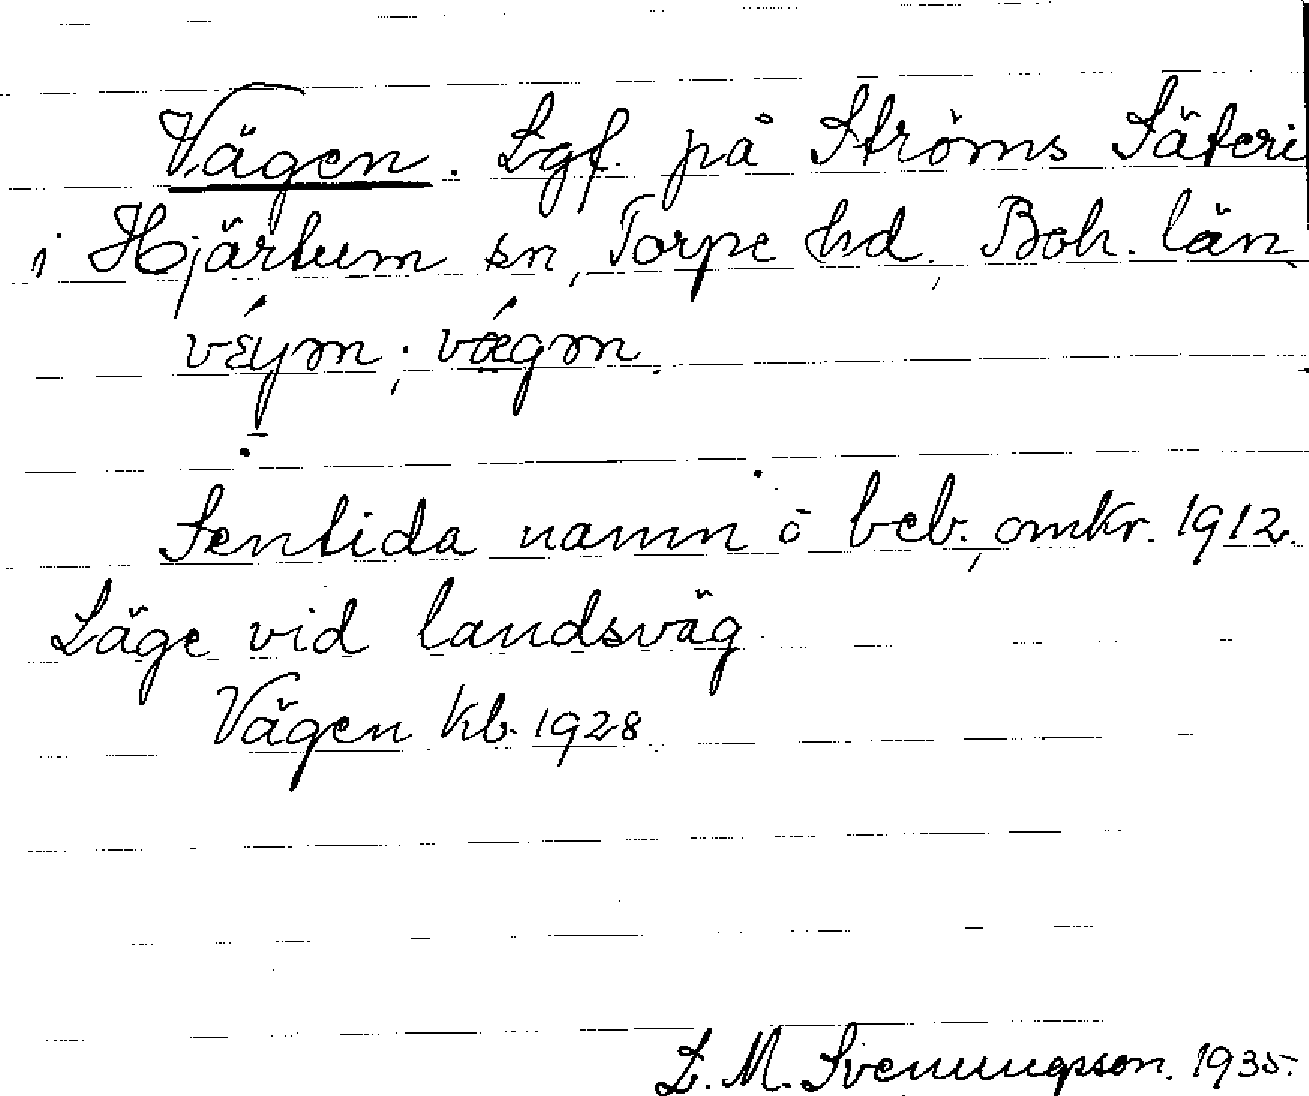 Vägen. Lgf. på Ströms Säteri
i Hjärtum sn, Torpe hd, Boh. län
Sentida namn o beb., omkr. 1912.
Läge vid landsväg.
Vägen Kb. 1928.
L. M. Svenungsson. 1935.